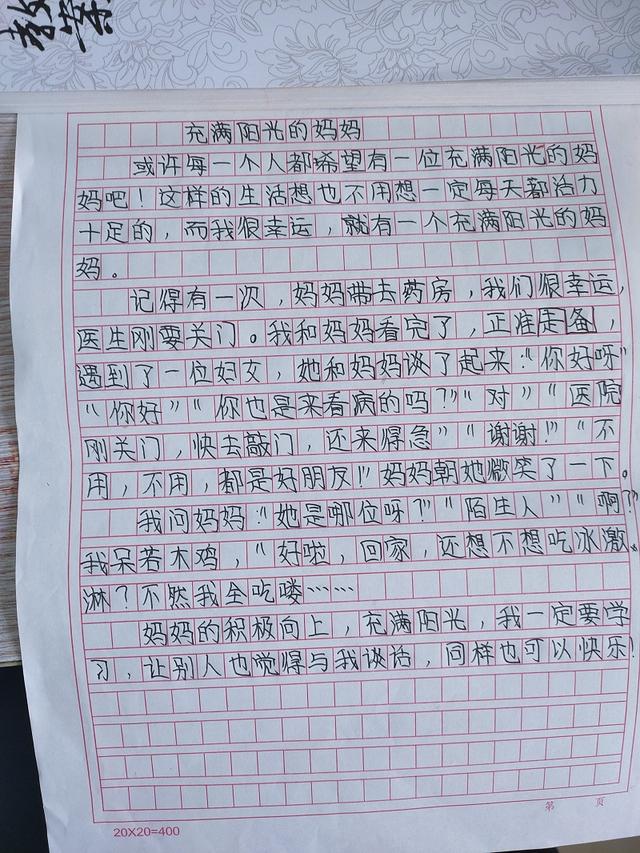 教案
充满阳光的妈妈
或许每一个人都希望有一位充满阳光的妈
妈吧！这样的生活想也不用想一定每天都活力
十足的，而我很幸运，就有一个充满阳光的妈
妈。
记得有一次，妈妈带去药房，我们很幸运，
医生刚要关门。我和妈妈看完了，正准走备，
遇到了一位妇女，她和妈妈谈了起来：“你好呀”
“你好”“你也是来看病的吗？”“对”“医院
刚关门，快去敲门，还来得急”“谢谢！”“不
用，不用，都是好朋友！”妈妈朝她微笑了一下。
我问妈妈：“她是哪位呀？”“陌生人”“啊？”
我呆若木鸡，“好啦，回家，还想不想吃冰激
淋？不然我全吃喽……
妈妈的积极向上，充满阳光，我一定要学
习，让别人也觉得与我谈话，同样也可以快乐！
第 页
20X20=400